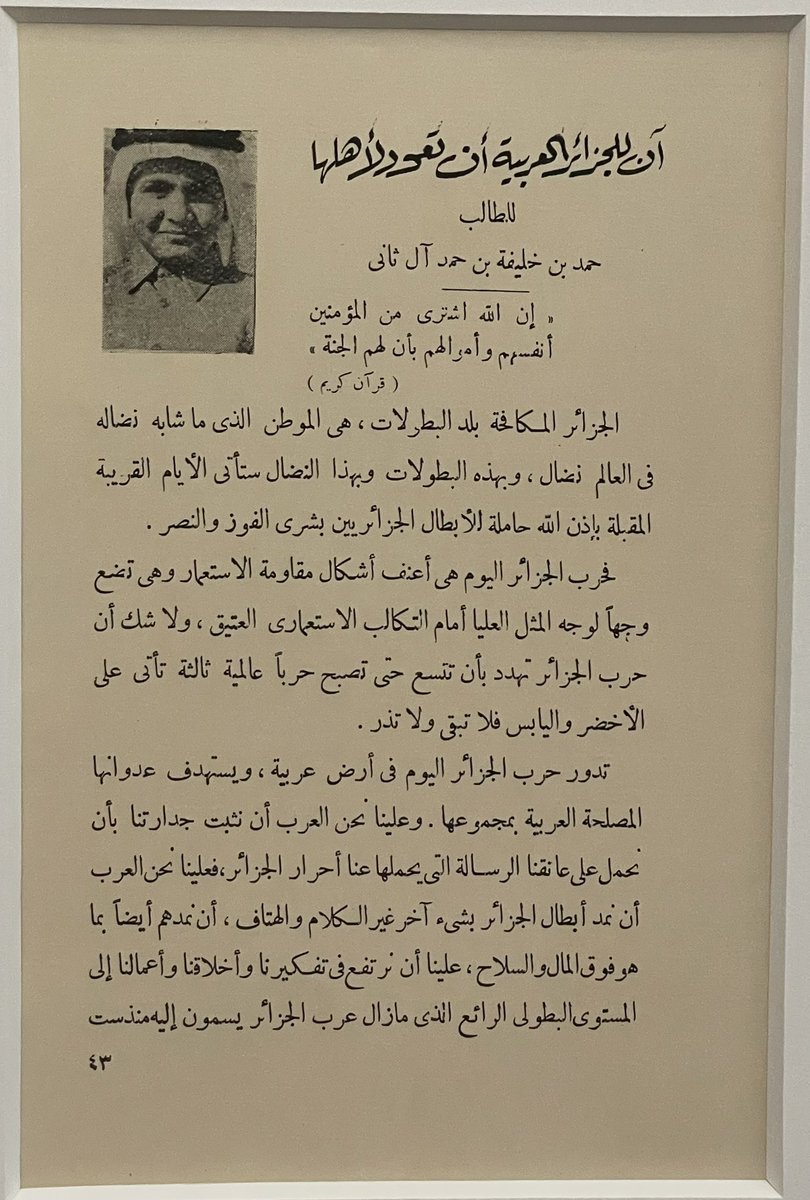 آن للجزائر العربية أن تعود لأهلها
للطالب
حمد بن خليفة بن حمد آل ثانى
« إن الله اشترى من المؤمنين
أنفسهم وأموالهم بأن لهم الجنة »
( قرآن كريم )
الجزائر المكافحة بلد البطولات ، هى الموطن الذى ما شابه نضاله
فى العالم نضال ، وبهذه البطولات وبهذا النضال ستأتى الأيام القريبة
المقبلة بإذن الله حاملة للأبطال الجزائريين بشرى الفوز والنصر .
فحرب الجزائر اليوم هى أعنف أشكال مقاومة الاستعمار وهى تضع
وجهاً لوجه المثل العليا أمام التكالب الاستعمارى العتيق ، ولا شك أن
حرب الجزائر تهدد بأن تتسع حتى تصبح حرباً عالمية ثالثة تأتى على
الأخضر واليابس فلا تبقى ولا تذر .
تدور حرب الجزائر اليوم فى أرض عربية ، ويستهدف عدوانها
المصلحة العربية بمجموعها . وعلينا نحن العرب أن نثبت جدارتنا بأن
نحمل على عاتقنا الرسالة التى يحملها عنا أحرار الجزائر ، فعلينا نحن العرب
أن نمد أبطال الجزائر بشىء آخر غير الكلام والهتاف ، أن نمدهم أيضاً بما
هو فوق المال والسلاح ، علينا أن نرتفع فى تفكيرنا وأخلاقنا وأعمالنا إلى
المستوى البطولى الرائع الذى مازال عرب الجزائر يسمون إليه منذ ست
٤٣